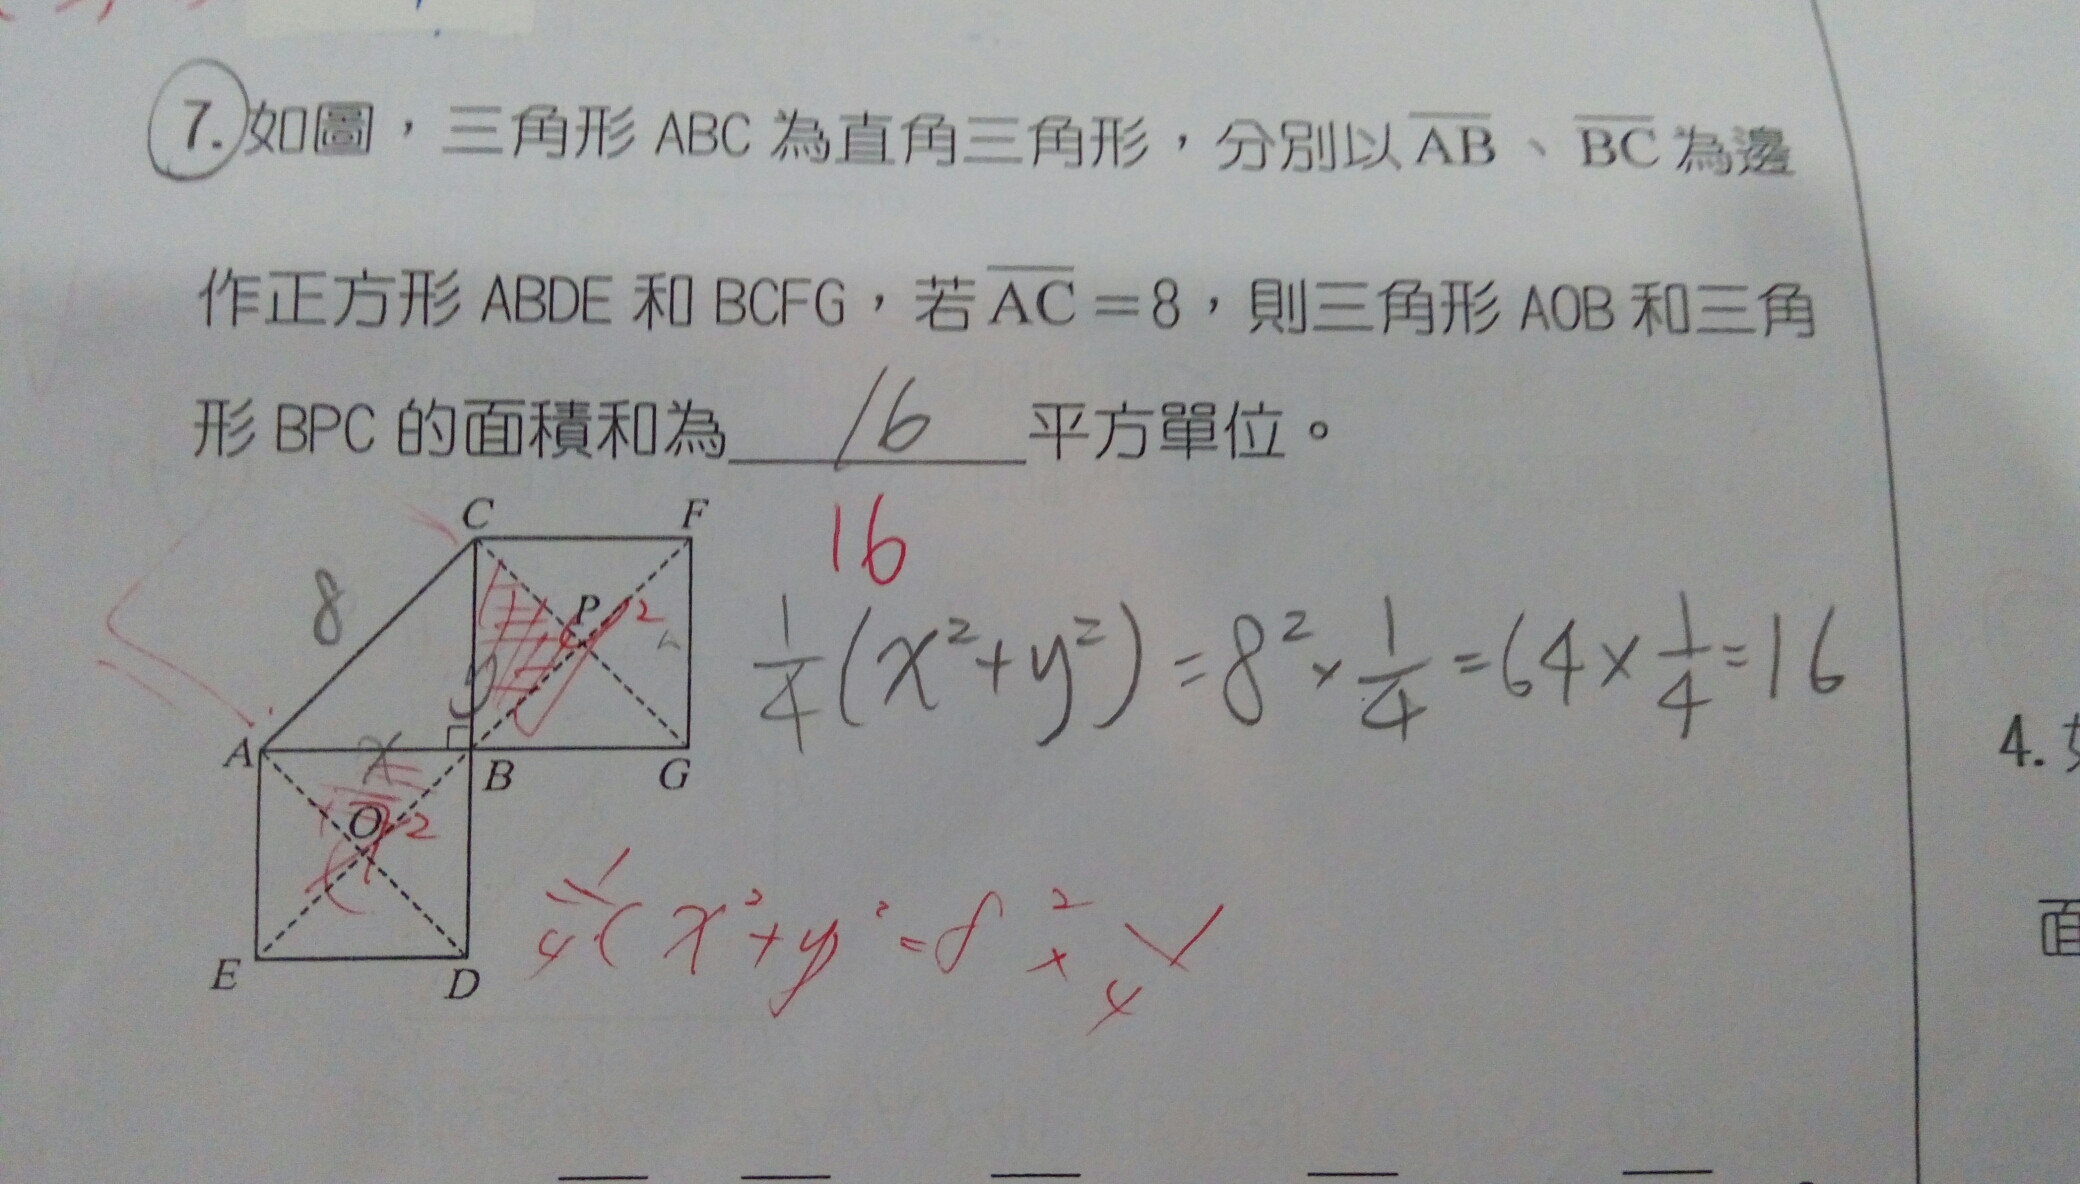 7.如圖,三角形 ABC 為直角三角形,分別以 AB、BC 為邊
作正方形 ABDE 和 BCFG,若 AC=8,則三角形 AOB 和三角
形 BPC 的面積和為 16 平方單位。
16
C F
8
P 2
1/4(x²+y²)=8²×1/4=64×1/4=16
A x B G
4.
O 2
1/4(x²+y²=8²×
4
面
E D